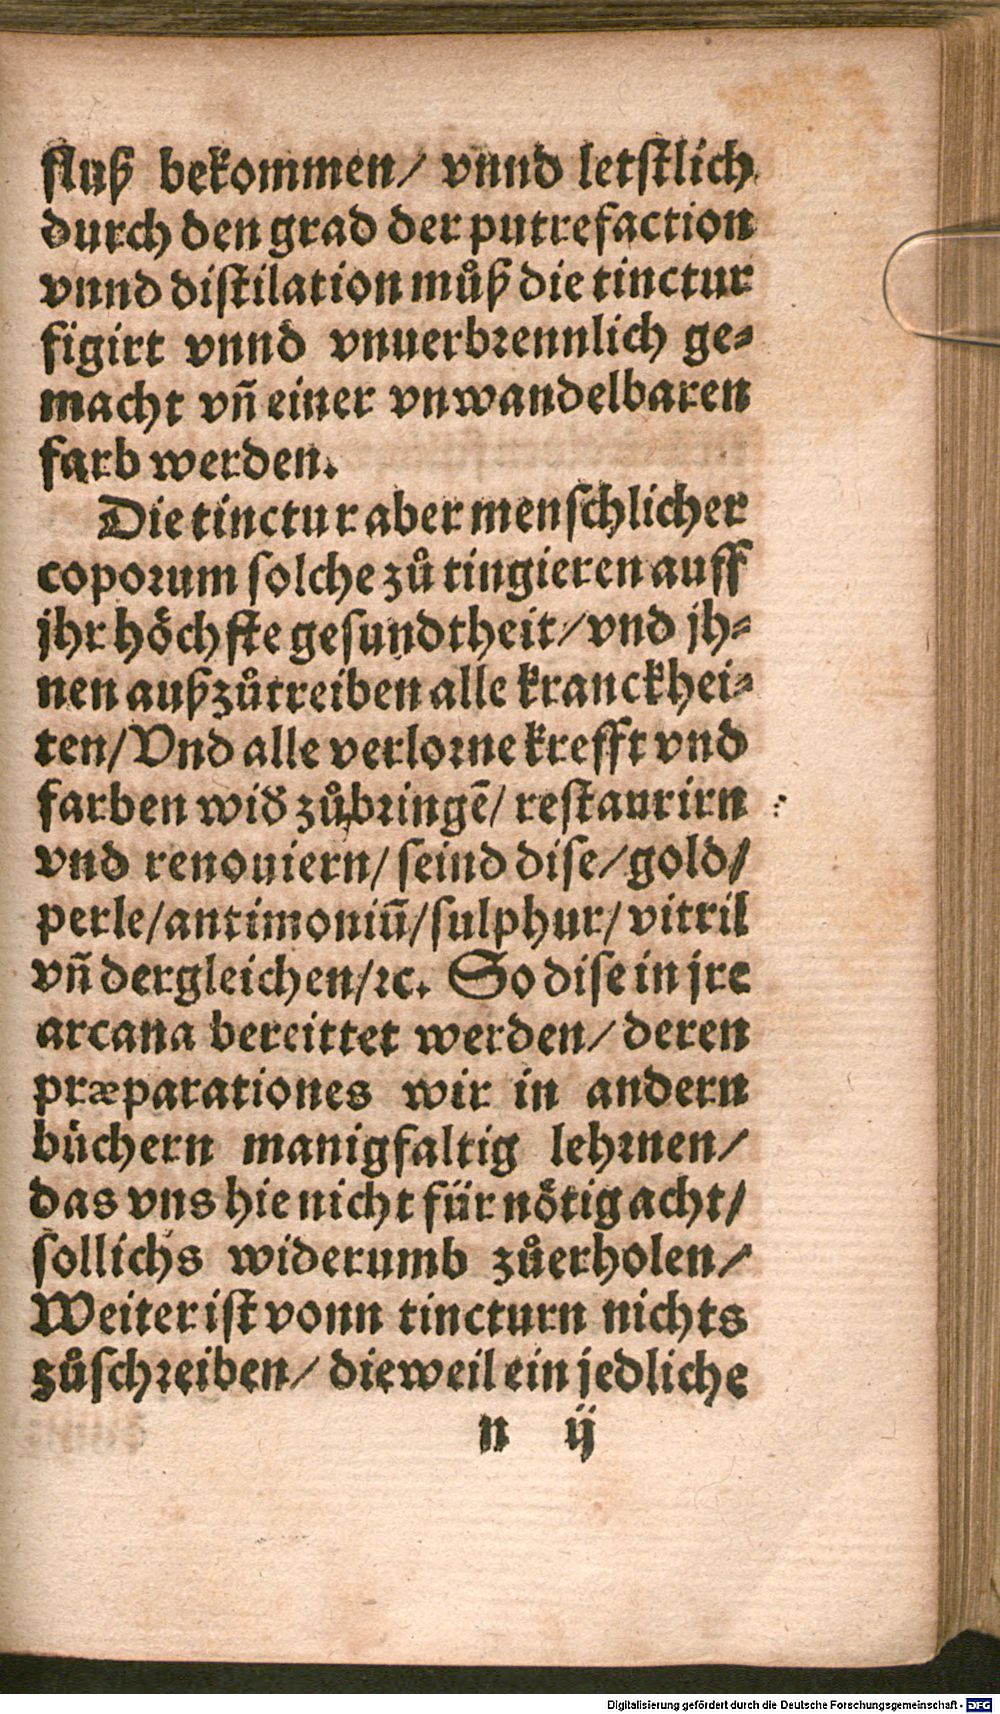 fluß bekommen/ vnnd letſtlich
durch den grad der putrefaction
vnnd diſtilation můß die tinctur
figirt vnnd vnuerbꝛennlich ge⸗
macht vñ einer vnwandelbaren
farb werden.
Die tinctur aber menſchlicher
copoꝛum ſolche zů tingieren auff
jhr höchſte geſundtheit/ vnd jh⸗
nen außzůtreiben alle kranckhei⸗
ten/ Vnd alle verloꝛne krefft vnd
farben wiď zůbꝛingē/ reſtaurirn
vnd renouiern/ ſeind diſe/ gold/
perle/ antimoniū/ ſulphur/ vitril
vñ dergleichen/ ꝛc. So diſe in jre
arcana bereittet werden/ deren
præparationes wir in andern
büchern manigfaltig lehꝛnen/
das vns hie nicht für nötig acht/
ſollichs widerumb zůerholen/
Weiter iſt vonn tincturn nichts
zůſchꝛeiben/ dieweil ein jedliche
n ij
Digitalisierung gefördert durch die Deutsche Forschungsgemeinschaft - DFG